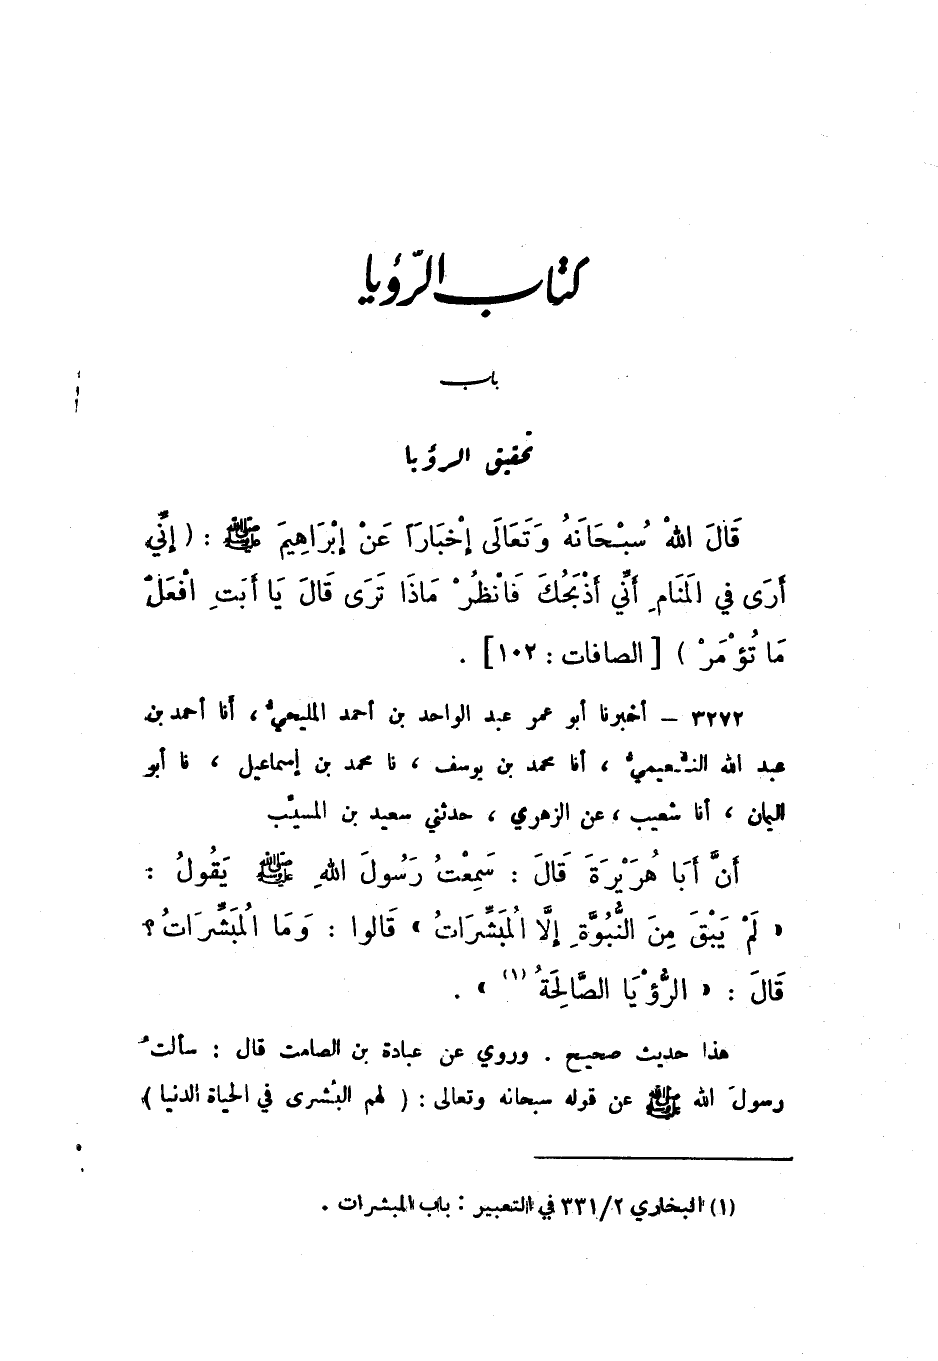 كتاب الرّؤيا
باب
تحقيق الرؤيا
قَالَ اللهُ سُبْحَانَهُ وَتَعَالَى إِخْبَارَاً عَنْ إِبْرَاهِيمَ ﷺ : ( إِنِّي
أَرَى فِي الْمَنَامِ أَنِّي أَذْبَحُكَ فَانْظُرْ مَاذَا تَرَى قَالَ يَا أَبَتِ افْعَلْ
مَا تُؤْمَرْ ) [ الصافات : ١٠٢ ] .
٣٢٧٢ – أخبرنا أبو عمر عبد الواحد بن أحمد المليحيُّ ، أنا أحمد بن
عبد الله النُّعيميُّ ، أنا محمد بن يوسف ، نا محمد بن إسماعيل ، نا أبو
اليمان ، أنا شعيب ، عن الزهري ، حدثني سعيد بن المسيِّب
أَنَّ أَبَا هُرَيْرَةَ قَالَ : سَمِعْتُ رَسُولَ اللهِ ﷺ يَقُولُ :
« لَمْ يَبْقَ مِنَ النُّبُوَّةِ إِلَّا الْمُبَشِّرَاتُ » قَالُوا : وَمَا الْمُبَشِّرَاتُ ؟
قَالَ : « الرُّؤْيَا الصَّالِحَةُ (١) » .
هذا حديث صحيح . وروي عن عبادة بن الصامت قال : سألتُ
رسولَ الله ﷺ عن قوله سبحانه وتعالى : ( لهم البُشرى في الحياة الدنيا )
(١) البخاري ٣٣١/٢ في التعبير : باب المبشرات .